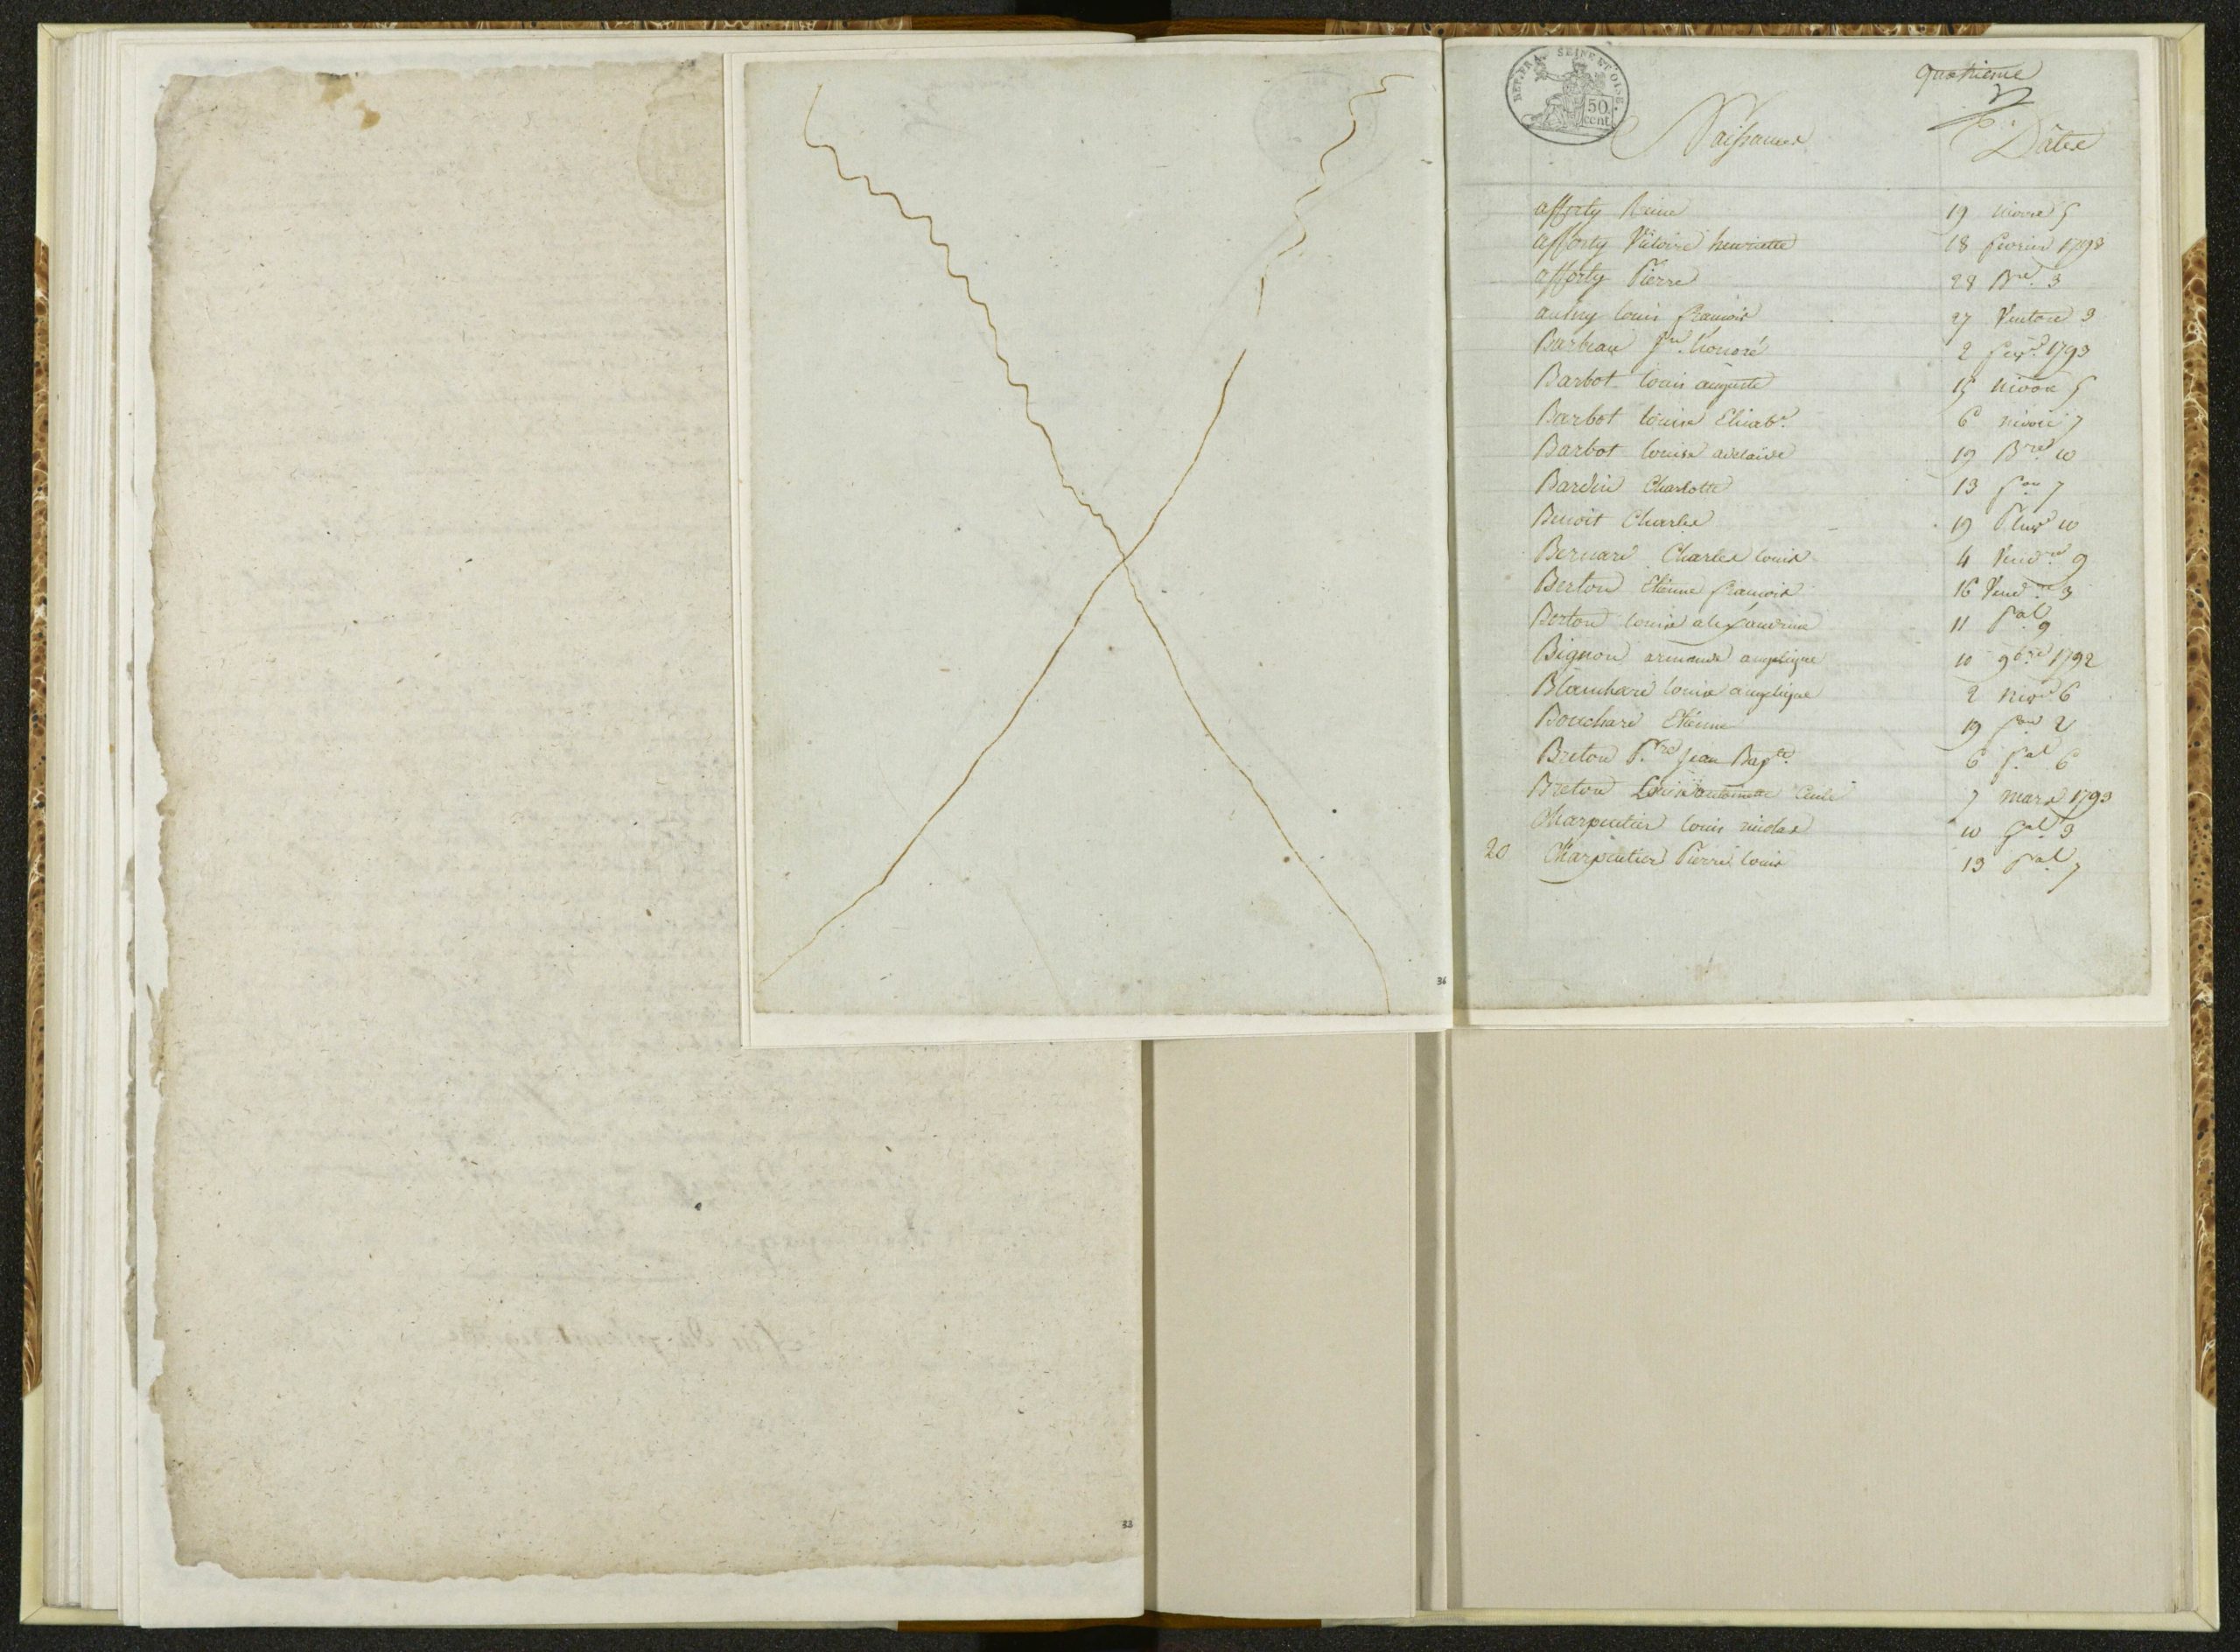 REP. FRA. SEINE ET OISE.
50
cent.
quatrieme
Naissances
Dates
afforty Reine 19 nivose 5
afforty Victoire henriette 18 fevrier 1793
afforty Pierre 28 Bre. 3
aubry louis francois 27 Ventose 3
Barbeau honoré 2 1793
Barbot louis auguste 15 nivose 5
Barbot louise Elisabe. 6 nivose 7
Barbot louise adelaide 19 Bre. 10
Bardin Charlotte 13 7
Benoit Charles 19 Pluse 10
Bernard Charles louis 4 Vendre. 9
Berton Etienne francois 16 Vendre. 3
Berton louise alexandrine 11 9
Bignon armande angelique 10 9bre. 1792
Blanchard louise angelique 2 nivse 6
Bouchard Etienne 19 2
Breton Pre. Jean Bapte. 6 6
Breton Louise antoinette Cecile 7 mars 1793
Charpentier louis nicolas 10 3
20 Charpentier Pierre louis 13 7
36
33